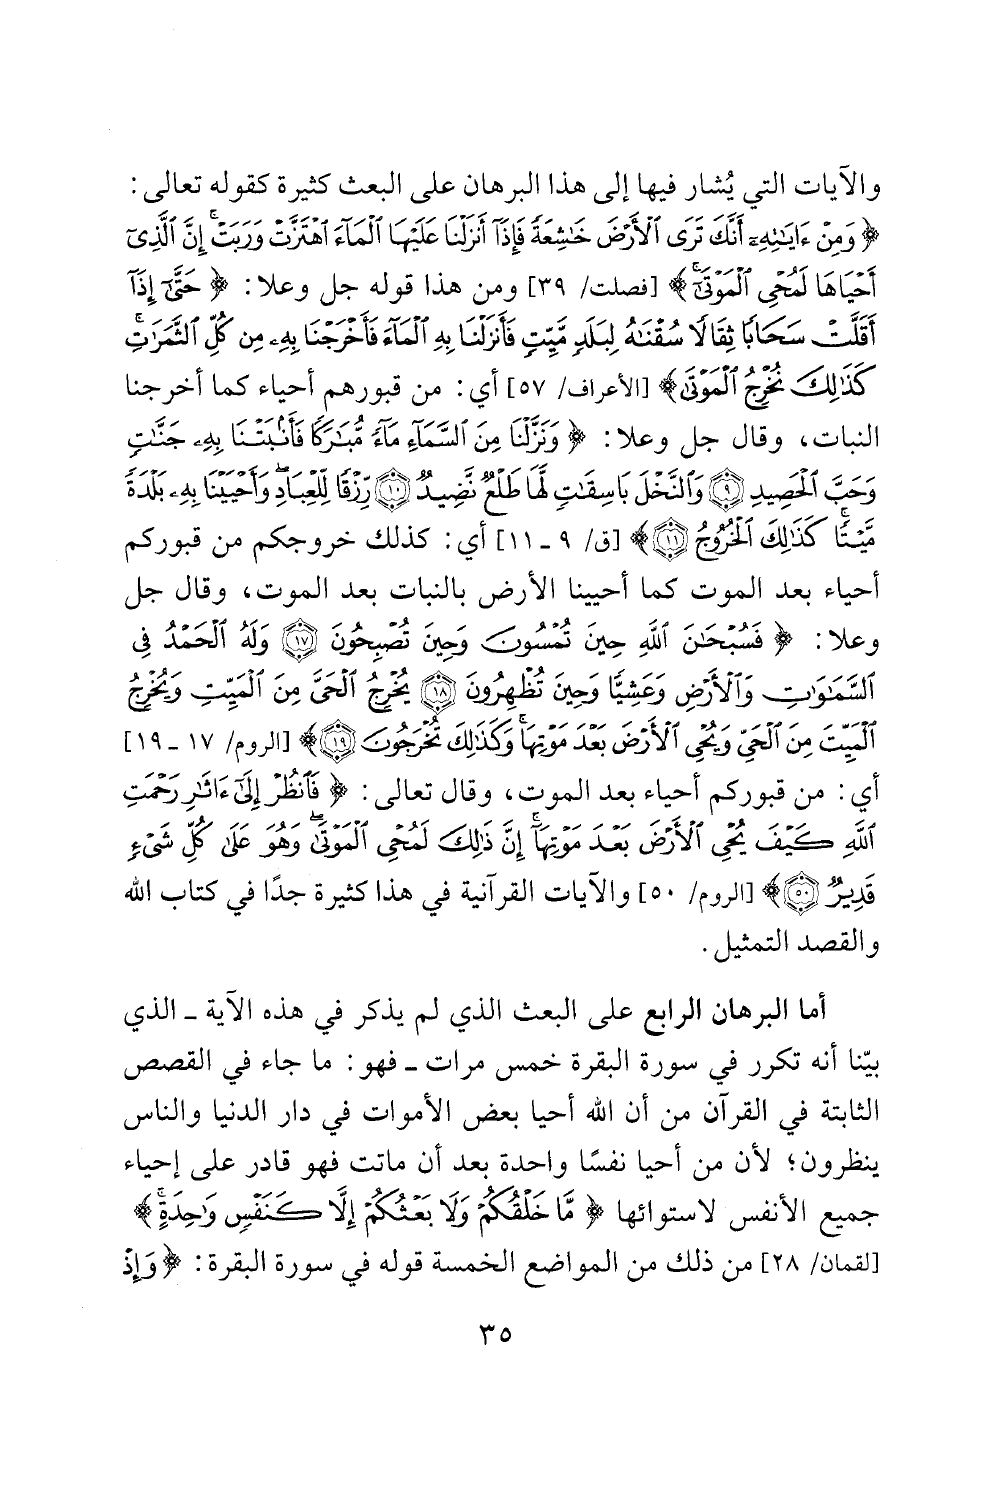 والآيات التي يُشار فيها إلى هذا البرهان على البعث كثيرة كقوله تعالى:
﴿ وَمِنْ ءَايَٰتِهِۦٓ أَنَّكَ تَرَى ٱلْأَرْضَ خَٰشِعَةً فَإِذَآ أَنزَلْنَا عَلَيْهَا ٱلْمَآءَ ٱهْتَزَّتْ وَرَبَتْۚ إِنَّ ٱلَّذِىٓ
أَحْيَاهَا لَمُحْىِ ٱلْمَوْتَىٰٓۚ ﴾ [فصلت/ ٣٩] ومن هذا قوله جل وعلا: ﴿ حَتَّىٰٓ إِذَآ
أَقَلَّتْ سَحَابًا ثِقَالًا سُقْنَٰهُ لِبَلَدٍ مَّيِّتٍ فَأَنزَلْنَا بِهِ ٱلْمَآءَ فَأَخْرَجْنَا بِهِۦ مِن كُلِّ ٱلثَّمَرَٰتِۚ
كَذَٰلِكَ نُخْرِجُ ٱلْمَوْتَىٰ ﴾ [الأعراف/ ٥٧] أي: من قبورهم أحياء كما أخرجنا
النبات، وقال جل وعلا: ﴿ وَنَزَّلْنَا مِنَ ٱلسَّمَآءِ مَآءً مُّبَٰرَكًا فَأَنۢبَتْنَا بِهِۦ جَنَّٰتٍ
وَحَبَّ ٱلْحَصِيدِ ٩ وَٱلنَّخْلَ بَاسِقَٰتٍ لَّهَا طَلْعٌ نَّضِيدٌ ١٠ رِّزْقًا لِّلْعِبَادِۖ وَأَحْيَيْنَا بِهِۦ بَلْدَةً
مَّيْتًاۚ كَذَٰلِكَ ٱلْخُرُوجُ ١١ ﴾ [ق/ ٩ ـ ١١] أي: كذلك خروجكم من قبوركم
أحياء بعد الموت كما أحيينا الأرض بالنبات بعد الموت، وقال جل
وعلا: ﴿ فَسُبْحَٰنَ ٱللَّهِ حِينَ تُمْسُونَ وَحِينَ تُصْبِحُونَ ١٧ وَلَهُ ٱلْحَمْدُ فِى
ٱلسَّمَٰوَٰتِ وَٱلْأَرْضِ وَعَشِيًّا وَحِينَ تُظْهِرُونَ ١٨ يُخْرِجُ ٱلْحَىَّ مِنَ ٱلْمَيِّتِ وَيُخْرِجُ
ٱلْمَيِّتَ مِنَ ٱلْحَىِّ وَيُحْىِ ٱلْأَرْضَ بَعْدَ مَوْتِهَاۚ وَكَذَٰلِكَ تُخْرَجُونَ ١٩ ﴾ [الروم/ ١٧ ـ ١٩]
أي: من قبوركم أحياء بعد الموت، وقال تعالى: ﴿ فَٱنظُرْ إِلَىٰٓ ءَاثَٰرِ رَحْمَتِ
ٱللَّهِ كَيْفَ يُحْىِ ٱلْأَرْضَ بَعْدَ مَوْتِهَآۚ إِنَّ ذَٰلِكَ لَمُحْىِ ٱلْمَوْتَىٰۖ وَهُوَ عَلَىٰ كُلِّ شَىْءٍ
قَدِيرٌ ٥٠ ﴾ [الروم/ ٥٠] والآيات القرآنية في هذا كثيرة جدًا في كتاب الله
والقصد التمثيل.
أما البرهان الرابع على البعث الذي لم يذكر في هذه الآية ـ الذي
بيّنا أنه تكرر في سورة البقرة خمس مرات ـ فهو: ما جاء في القصص
الثابتة في القرآن من أن الله أحيا بعض الأموات في دار الدنيا والناس
ينظرون؛ لأن من أحيا نفسًا واحدة بعد أن ماتت فهو قادر على إحياء
جميع الأنفس لاستوائها ﴿ مَّا خَلْقُكُمْ وَلَا بَعْثُكُمْ إِلَّا كَنَفْسٍ وَٰحِدَةٍۚ ﴾
[لقمان/ ٢٨] من ذلك من المواضع الخمسة قوله في سورة البقرة: ﴿ وَإِذْ
٣٥